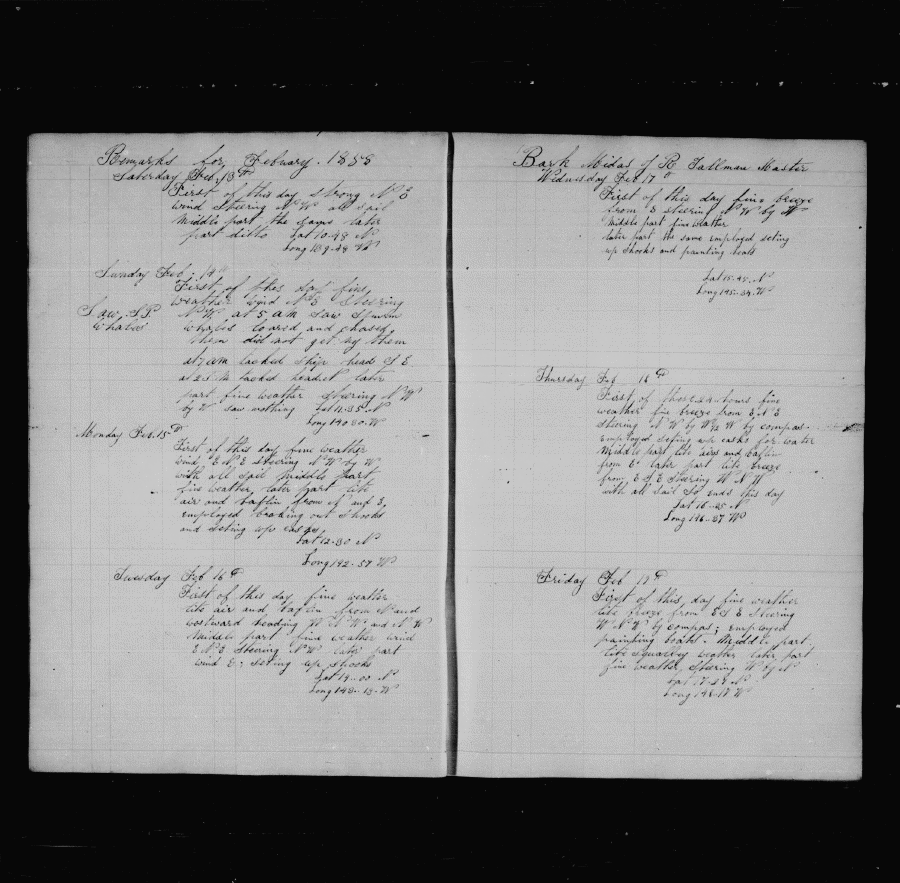 Remarks for Febuary. 1858
Saturday Feb. 13th
First of this day strong N E
wind steering N W all sail
Middle part the same later
part ditto Lat 10-48 N
Long 139-48 W
Sunday Feb. 14
First of this day fine
weather wind N E steering
N W at 5 am saw Sperm
Saw, S.P. whales loared and chased
whales them did not get by them
at 7 am tacked ship head S E
at tacked head N later
part fine weather steering N W
by W saw nothing Lat 11-35 N
Long 140-30 W
Monday Feb. 15th
First of this day fine weather
wind E N E steering N W by W
with all sail middle part
fine weather later part lite
air and baflin from N and E,
employed braking out shooks
and seting up casks,
Lat 12-30 N
Long 142-57 W
Tuesday Feb 16th
First of this day fine weather
lite air and baflin from N and
westward heading W N W and N W
Middle part fine weather wind
E N E steering N W later part
wind E; seting up shooks
Lat 14-00 N
Long 143-13 W
Bark Midas of R Tallman Master
Wednesday Feb 17
First of this day fine breeze
from E steerin N W by W
Middle part fine weather
later part the same employed seting
up shooks and painting boats
Lat 15-48 N
Long 145-34 W
Thursday Feb 18th
First of these 24 hours fine
weather fine breeze from E N E
steering N W by W 1/2 W by compas.
employed seting up casks for water
Middle part lite airs and baflin
from E later part lite breeze
from E S E steering W N W
with all sail So ends this day
Lat 16-45 N
Long 146-37 W
Friday Feb 19th
First of this day fine weather
lite breeze from E S E steering
W N W by compas; employed
painting boats. Middle part
lite squarley weather later part
fine weather steering W by N
Lat 17-27 N
Long 148-17 W